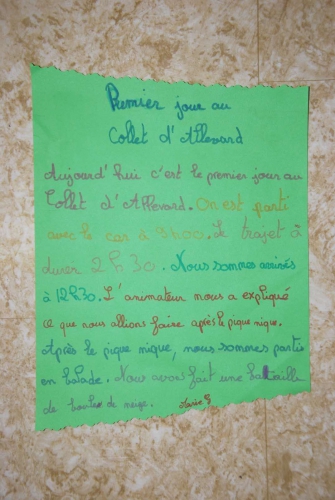 Premier jour au
Collet d'Allevard
Aujourd'hui c'est le premier jour au
Collet d'Allevard. On est parti
avec le car à 9h00. Le trajet à
durer 2h30. Nous sommes arrivés
à 12h30. L'animateur nous a expliqué
ce que nous allions faire après le pique nique.
Après le pique nique, nous sommes partis
en balade. Nous avons fait une bataille
de boules de neige.